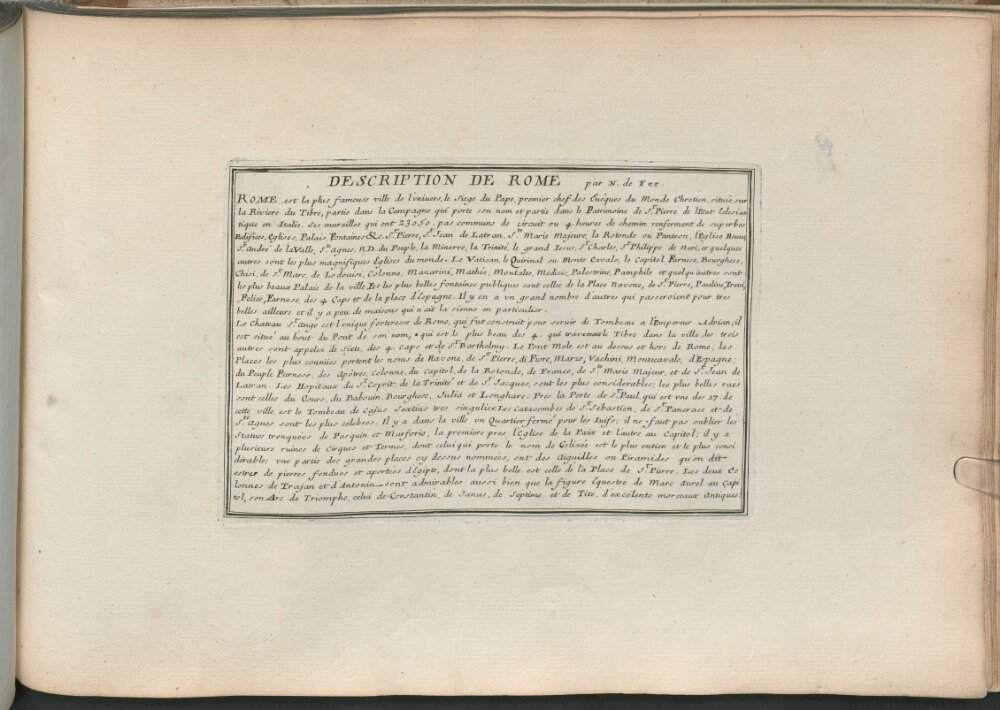 DESCRIPTION DE ROME par N. de Fer.
ROME, est la plus fameuse ville de l'univers, le Siege du Pape, premier chef des Evéques du Monde Chretien, située sur
la Riviere du Tibre, partie dans la Campagne qui porte son nom et partie dans le Patrimoine de St. Pierre de l'Etat Eclesias
tique en Italie. Ses murailles qui ont 23050. pas communs de circuit ou 4 heures de chemin renferment de superbes
Edifices, Eglises, Palais, Fontaines &c. St. Pierre, St. Jean de Latran, Ste. Marie Majeure, la Rotonde ou Panteon, l'Eglise
St. André de la Valle, Ste. Agnes, N.D. du Peuple, la Minerve, la Trinité, le grand Jesus, St. Charles, St. Philippe de Neri, et quelques
autres sont les plus magnifiques Eglises du monde. Le Vatican, le Quirinal ou Monte Cavalo, le Capitol, Fernese, Bourghese,
Chisi, de St. Marc, de Lodouisi, Colonne, Mazarini, Mathée, Montalte, Medicis, Palestrine, Pamphile et quelqu'autres sont
les plus beaux Palais de la ville Et les plus belles fontaines publiques sont celles de la Place Navone, de St. Pierre, Pauline, Trevi,
Felice, Farnese, des 4 Caps et de la place d'Espagne. Il y en a vn grand nombre d'autres qui passeroient pour tres
belles ailleurs et il y a peu de maisons qui n'ait la sienne en particulier.
Le Chateau St. Ange est l'vnique forteresse de Rome, qui fut construit pour servir de Tombeau a l'Empereur Adrian; il
est situé au bout du Pont de son nom, qui est le plus beau des 4. qui traversent le Tibre dans la ville, les trois
autres sont appelez de Sixte, des 4. Caps et de St. Barthelmy. Le Pont Mole est au dessus et hors de Rome, les
Places les plus connües portent les noms de Navone, de St. Pierre, di Fiore, Marzo, Vachini, Montecavalo, d'Espagne;
du Peuple Farnese, des Apôtres, Colonne, du Capitol, de la Rotonde, de France, de Ste. Marie Majeur, et de St. Jean de
Latran. Les Hopitaux du St. Esprit, de la Trinité et de St. Jacques, sont les plus considerables; les plus belles rues
sont celles du Cours, du Babouin, Bourghese, Julia et Longhare. Pres la Porte de St. Paul, qui est vne des 17. de
cette ville, est le Tombeau de Cajus Sextius tres singulier. Les Catacombes de St. Sebastien, de St. Pancrace et de
Ste. Agnes sont les plus celebres. Il y a dans la ville vn Quartier fermé pour les Juifs; il ne faut pas oublier les
Statues tronquées de Pasquin et Marforio, la premiere pres l'Eglise de la Paix et l'autre au Capitol; il y a
plusieurs ruines de Cirques et Termes, dont celui qui porte le nom de Colizée est le plus entier et le plus consi
dérable; vne partie des grandes places cy dessus nommées, ont des Aiguilles ou Piramides qu'on dit
estre de pierres fondues et aportées d'Egipte, dont la plus belle est celle de la Place de St. Pierre. Les deux Co
lonnes de Trajan et d'Antonin sont admirables aussi bien que la figure Equestre de Marc Aurel au Capi
tol, son Arc de Triomphe, celui de Constantin, de Janus, de Septime et de Tite, d'excelents morceaux Antiques.